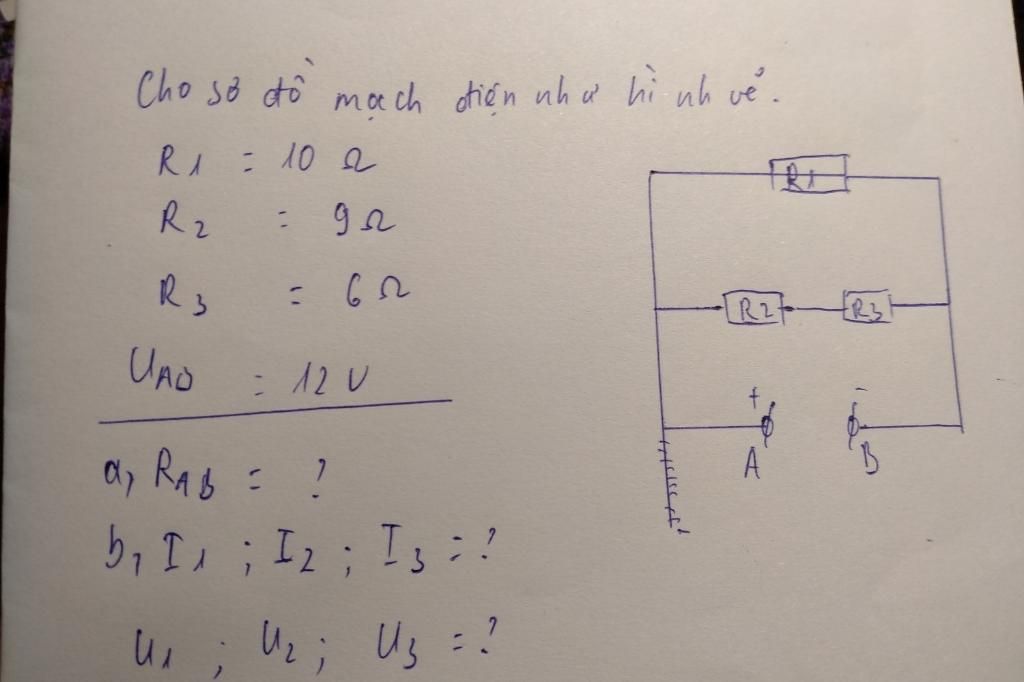 Cho sơ đồ mạch điện như hình vẽ.
R1 = 10 Ω
R2 = 9Ω
R3 = 6 Ω
UAB = 12 V
a, RAB = ?
b, I1 ; I2 ; I3 = ?
U1 ; U2 ; U3 = ?
R1
R2 R3
+ -
A B